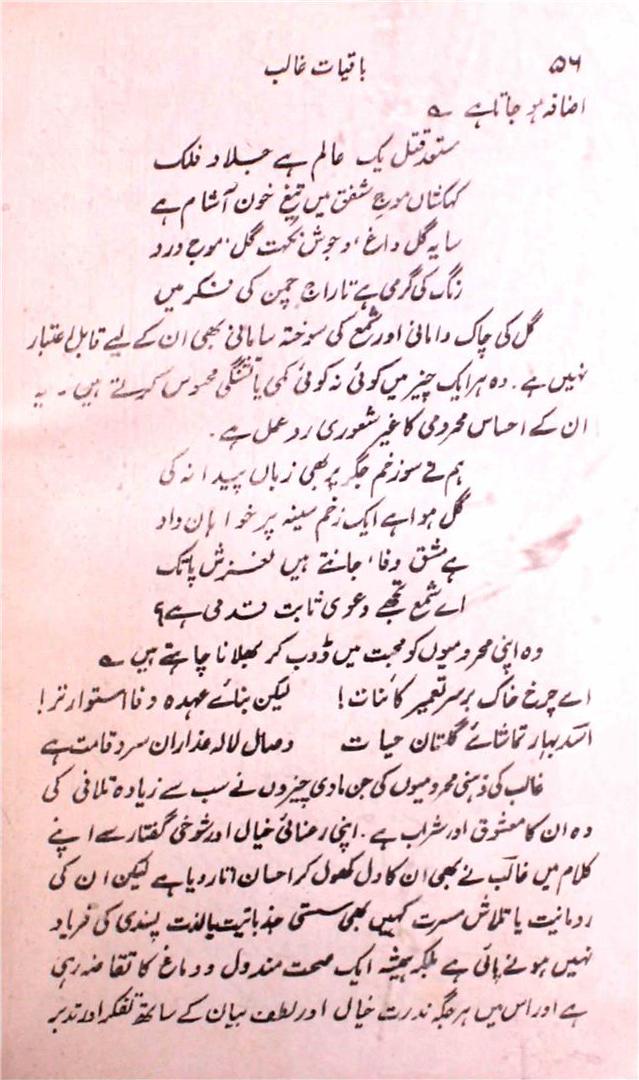 ۵۶ باقیات غالب
اضافہ ہو جاتا ہے ؎
مستعد قتل یک عالم ہے جلاد فلک
کہکشاں موجِ شفق میں تیغ خون آشام ہے
سایہ گل داغ، و جوش نکہت گل، موج درد
رنگ کی گرمی ہے تاراج چمن کی فکر میں
گل کی چاک دامانی اور شمع کی سوختہ سامانی بھی ان کے لیے قابل اعتبار
نہیں ہے. وہ ہر ایک چیز میں کوئی نہ کوئی کمی یا تشنگی محسوس کرتے ہیں۔ یہ
ان کے احساس محرومی کا غیر شعوری رد عمل ہے.
ہم نے سو زخم جگر پر بھی زباں پیدا نہ کی
گل ہوا ہے ایک زخم سینہ پر خواہان داد
ہے مشق وفا، جانتے ہیں لغزش پا تک
اے شمع تجھے دعویٰ ثابت قدمی ہے؟
وہ اپنی محرومیوں کو محبت میں ڈوب کر بھلانا چاہتے ہیں ؎
اے چرخ خاک بر سر تعمیر کائنات! لیکن بنائے عہدہ وفا استوار تر!
اسد بہار تماشائے گلستان حیات وصال لالہ عذاران سرو قامت ہے
غالب کی ذہنی محرومیوں کی جن مادی چیزوں نے سب سے زیادہ تلافی کی
وہ ان کا معشوق اور شراب ہے. اپنی رعنائی خیال اور شوخی گفتار سے اپنے
کلام میں غالب نے بھی ان کا دل کھول کر احسان اتار دیا ہے لیکن ان کی
رومانیت یا تلاش مسرت کہیں بھی سستی جذباتیت یا لذت پسندی کی فریاد
نہیں ہونے پائی ہے بلکہ ہمیشہ ایک صحت مند دل و دماغ کا تقاضہ رہی
ہے اور اس میں ہر جگہ ندرت خیال اور لطف بیان کے ساتھ تفکر اور تدبر